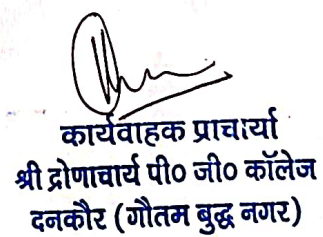 कार्यवाहक प्राचार्या
श्री द्रोणाचार्य पी० जी० कॉलेज
दनकौर (गौतम बुद्ध नगर)